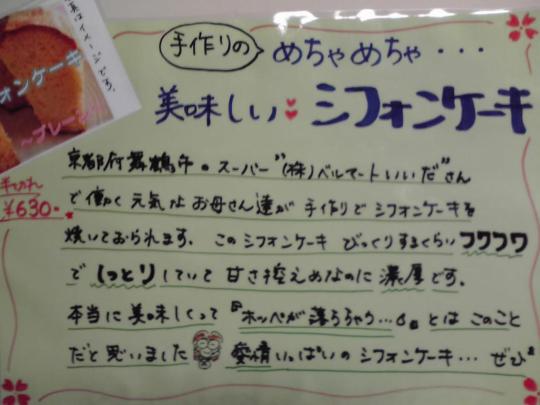 手作りの めちゃめちゃ・・・
美味しい シフォンケーキ
ォンケーキ
～プレーン
半切れ
¥630.
京都府舞鶴市のスーパー"(株)ベルマートいいだ"さん
で働く元気なお母さん達が手作りでシフォンケーキを
焼いておられます。このシフォンケーキびっくりするくらいフワフワ
でしっとりしていて甘さ控えめなのに濃厚です。
本当に美味しくって『ホッペが落ちちゃう…』とはこのこと
だと思いました 愛情いっぱいのシフォンケーキ… ぜひ